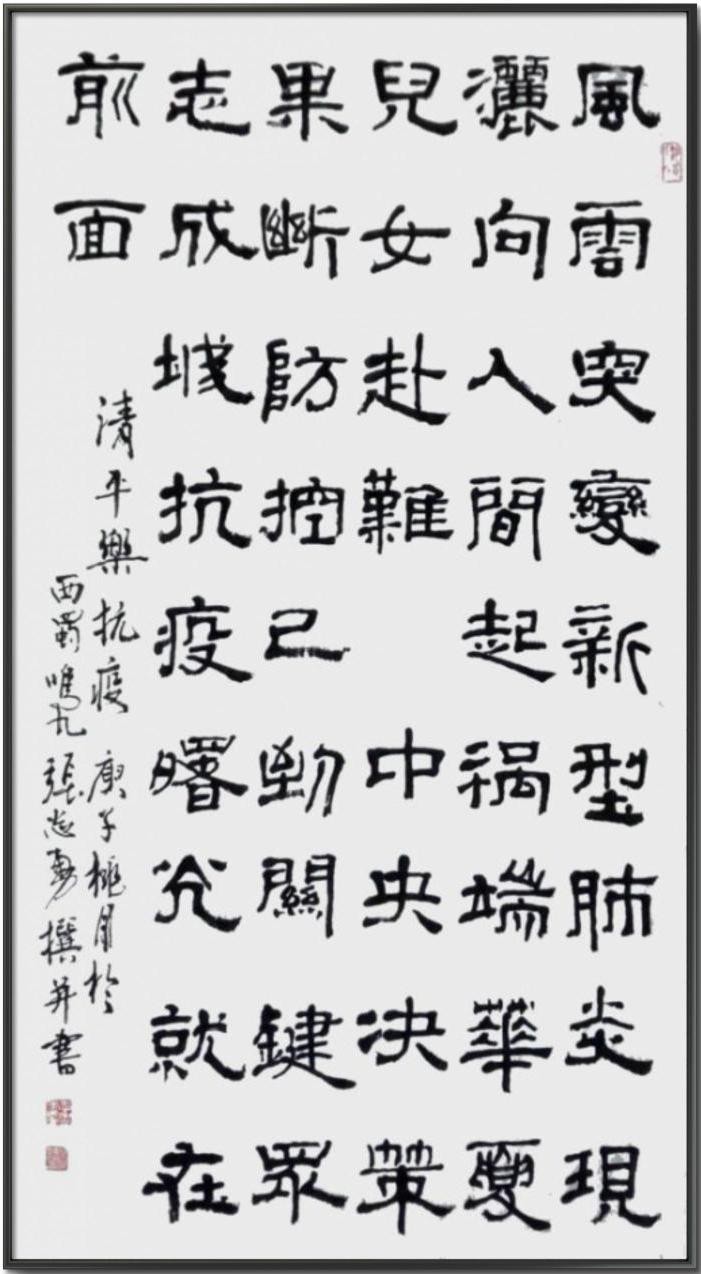 風雲突變新型肺炎現
灑向人間起禍端華夏
兒女赴難 中央决策
果斷防控已到關鍵眾
志成城抗疫曙光就在
前面
清平樂抗疫 庚子桃月於
西蜀 張志勇撰并書